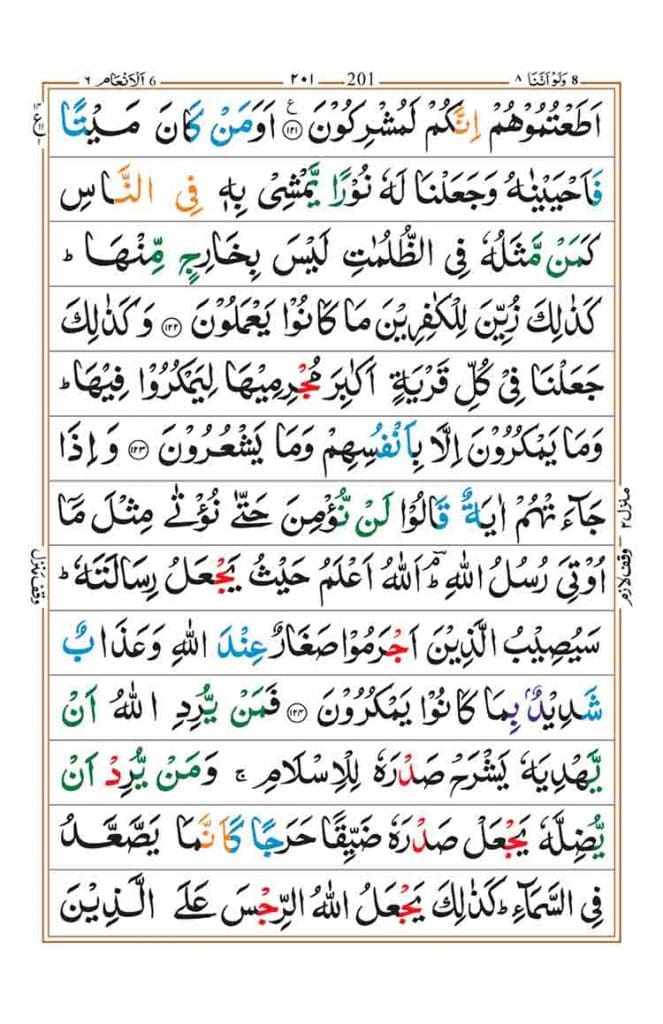 8 وَلَوْ اَنَّنَا ٨ 201 ٢٠١ 6 اَلْاَنْعَام ٦
اَطَعْتُمُوْهُمْ اِنَّكُمْ لَمُشْرِكُوْنَ ع ١٢١ اَوَمَنْ كَانَ مَيْتًا
فَاَحْيَيْنٰهُ وَجَعَلْنَا لَهٗ نُوْرًا يَّمْشِىْ بِهٖ فِى النَّاسِ
كَمَنْ مَّثَلُهٗ فِى الظُّلُمٰتِ لَيْسَ بِخَارِجٍ مِّنْهَا ؕ
كَذٰلِكَ زُيِّنَ لِلْكٰفِرِيْنَ مَا كَانُوْا يَعْمَلُوْنَ ١٢٢ وَكَذٰلِكَ
جَعَلْنَا فِىْ كُلِّ قَرْيَةٍ اَكٰبِرَ مُجْرِمِيْهَا لِيَمْكُرُوْا فِيْهَا ؕ
وَمَا يَمْكُرُوْنَ اِلَّا بِاَنْفُسِهِمْ وَمَا يَشْعُرُوْنَ ١٢٣ وَاِذَا
جَآءَتْهُمْ اٰيَةٌ قَالُوْا لَنْ نُّؤْمِنَ حَتّٰى نُؤْتٰى مِثْلَ مَآ
اُوْتِىَ رُسُلُ اللّٰهِ ؔۘؕ اَللّٰهُ اَعْلَمُ حَيْثُ يَجْعَلُ رِسَالَتَهٗ ؕ
سَيُصِيْبُ الَّذِيْنَ اَجْرَمُوْا صَغَارٌ عِنْدَ اللّٰهِ وَعَذَابٌ
شَدِيْدٌۢ بِمَا كَانُوْا يَمْكُرُوْنَ ١٢٤ فَمَنْ يُّرِدِ اللّٰهُ اَنْ
يَّهْدِيَهٗ يَشْرَحْ صَدْرَهٗ لِلْاِسْلَامِ ۚ وَمَنْ يُّرِدْ اَنْ
يُّضِلَّهٗ يَجْعَلْ صَدْرَهٗ ضَيِّقًا حَرَجًا كَاَنَّمَا يَصَّعَّدُ
فِى السَّمَآءِ ؕ كَذٰلِكَ يَجْعَلُ اللّٰهُ الرِّجْسَ عَلَى الَّذِيْنَ
منزل ٢
وقف لازم
وقف منزل